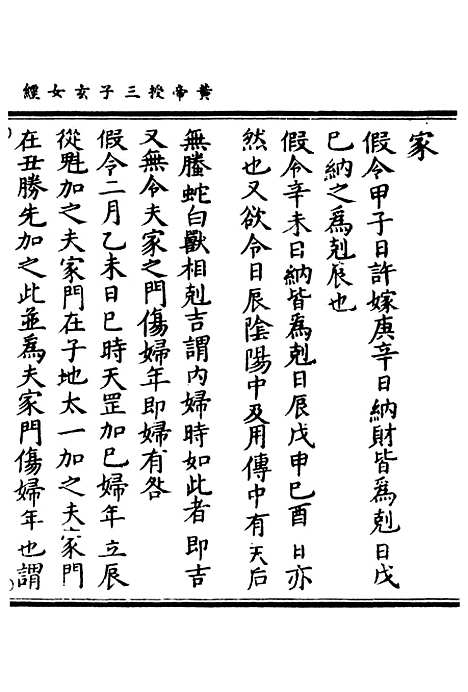 黃帝授三子玄女經
家
假令甲子日許嫁庚辛日納財皆爲剋日戊
巳納之爲剋辰也
假令辛未日納皆爲剋日辰戊申巳酉日亦
然也又欲令日辰陰陽中及用傳中有天后
無螣蛇白獸相剋吉謂内婦時如此者即吉
又無令夫家之門傷婦年即婦有咎
假令二月乙未日巳時天罡加巳婦年立辰
從魁加之夫家門在子地太一加之夫家門
在丑勝先加之此並爲夫家門傷婦年也謂